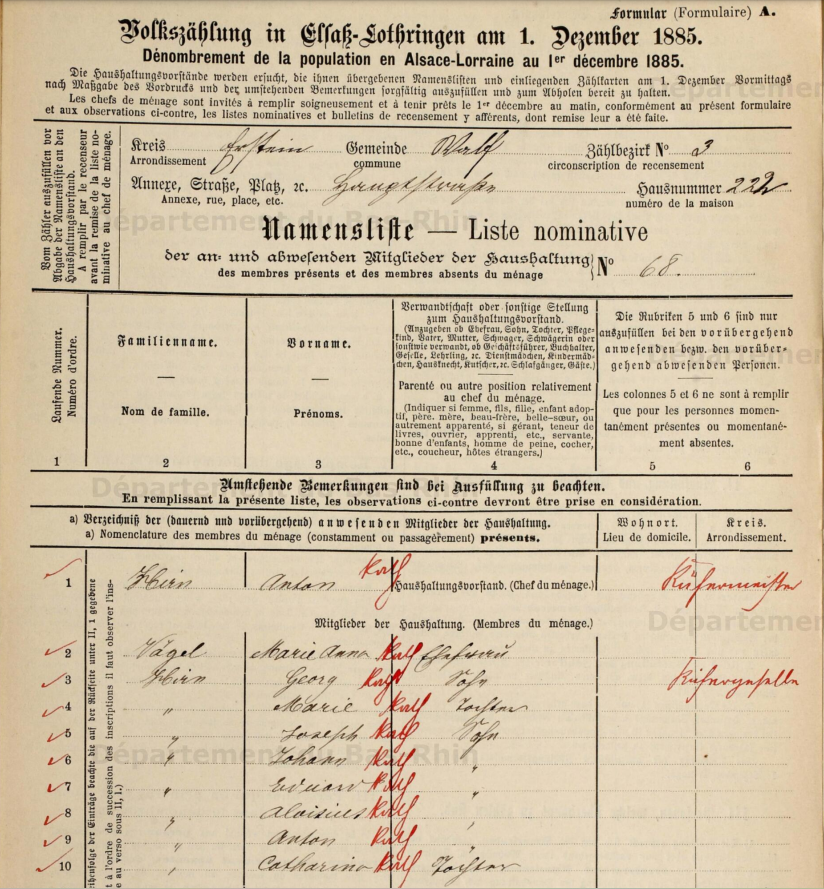 Formular (Formulaire) A.
Volkszählung in Elsaß-Lothringen am 1. Dezember 1885.
Dénombrement de la population en Alsace-Lorraine au 1er décembre 1885.
Die Haushaltungsvorstände werden ersucht, die ihnen übergebenen Namenslisten und einliegenden Zählkarten am 1. Dezember Vormittags
nach Maßgabe des Vordrucks und der umstehenden Bemerkungen sorgfältig auszufüllen und zum Abholen bereit zu halten.
Les chefs de ménage sont invités à remplir soigneusement et à tenir prêts le 1er décembre au matin, conformément au présent formulaire
et aux observations ci-contre, les listes nominatives et bulletins de recensement y afférents, dont remise leur a été faite.
Vom Zähler auszufüllen vor
Abgabe der Namensliste an den
Haushaltungsvorstand.
A remplir par le recenseur
avant la remise de la liste no-
minative au chef de ménage.
Kreis Erstein Gemeinde Walf Zählbezirk No 3
Arrondissement commune circonscription de recensement
Annexe, Straße, Platz, ꝛc. Hauptstraße Hausnummer 222
Annexe, rue, place, etc. numéro de la maison
Département du Bas-Rhin
Namensliste — Liste nominative
der an- und abwesenden Mitglieder der Haushaltung
des membres présents et des membres absents du ménage
No 68.
Laufende Nummer.
Numéro d'ordre.
1
Familienname.
Nom de famille.
2
Vorname.
Prénoms.
3
Verwandtschaft oder sonstige Stellung
zum Haushaltungsvorstand.
(Anzugeben ob Ehefrau, Sohn, Tochter, Pflege-
kind, Vater, Mutter, Schwager, Schwägerin oder
sonstwie verwandt, ob Geschäftsführer, Buchhalter,
Geselle, Lehrling, ꝛc. Dienstmädchen, Kindermäd-
chen, Hausknecht, Kutscher, ꝛc. Schlafgänger, Gäste.)
Parenté ou autre position relativement
au chef du ménage.
(Indiquer si femme, fils, fille, enfant adop-
tif, père. mère, beau-frère, belle-sœur, ou
autrement apparenté, si gérant, teneur de
livres, ouvrier, apprenti, etc., servante,
bonne d'enfants, homme de peine, cocher,
etc., coucheur, hôtes étrangers.)
4
Die Rubriken 5 und 6 sind nur
auszufüllen bei den vorübergehend
anwesenden bezw. den vorüber-
gehend abwesenden Personen.
Les colonnes 5 et 6 ne sont à remplir
que pour les personnes momen-
tanément présentes ou momentané-
ment absentes.
5 6
Umstehende Bemerkungen sind bei Ausfüllung zu beachten.
En remplissant la présente liste, les observations ci-contre devront être prise en considération.
a) Verzeichniß der (dauernd und vorübergehend) anwesenden Mitglieder der Haushaltung.
a) Nomenclature des membres du ménage (constamment ou passagèrement) présents.
Wohnort.
Lieu de domicile.
Kreis.
Arrondissement.
1 Hirn Anton Kath Haushaltungsvorstand. (Chef du ménage.) Küfermeister
Mitglieder der Haushaltung. (Membres du ménage.)
2 Vögel Marie Anna Kath Ehefrau
3 Hirn Georg Kath Sohn Küfergeselle
4 " Marie Kath Tochter
5 " Joseph Kath Sohn
6 " Johann Kath "
7 " Eduard Kath "
8 " Aloisius Kath "
9 " Anton Kath "
10 " Catharina Kath Tochter